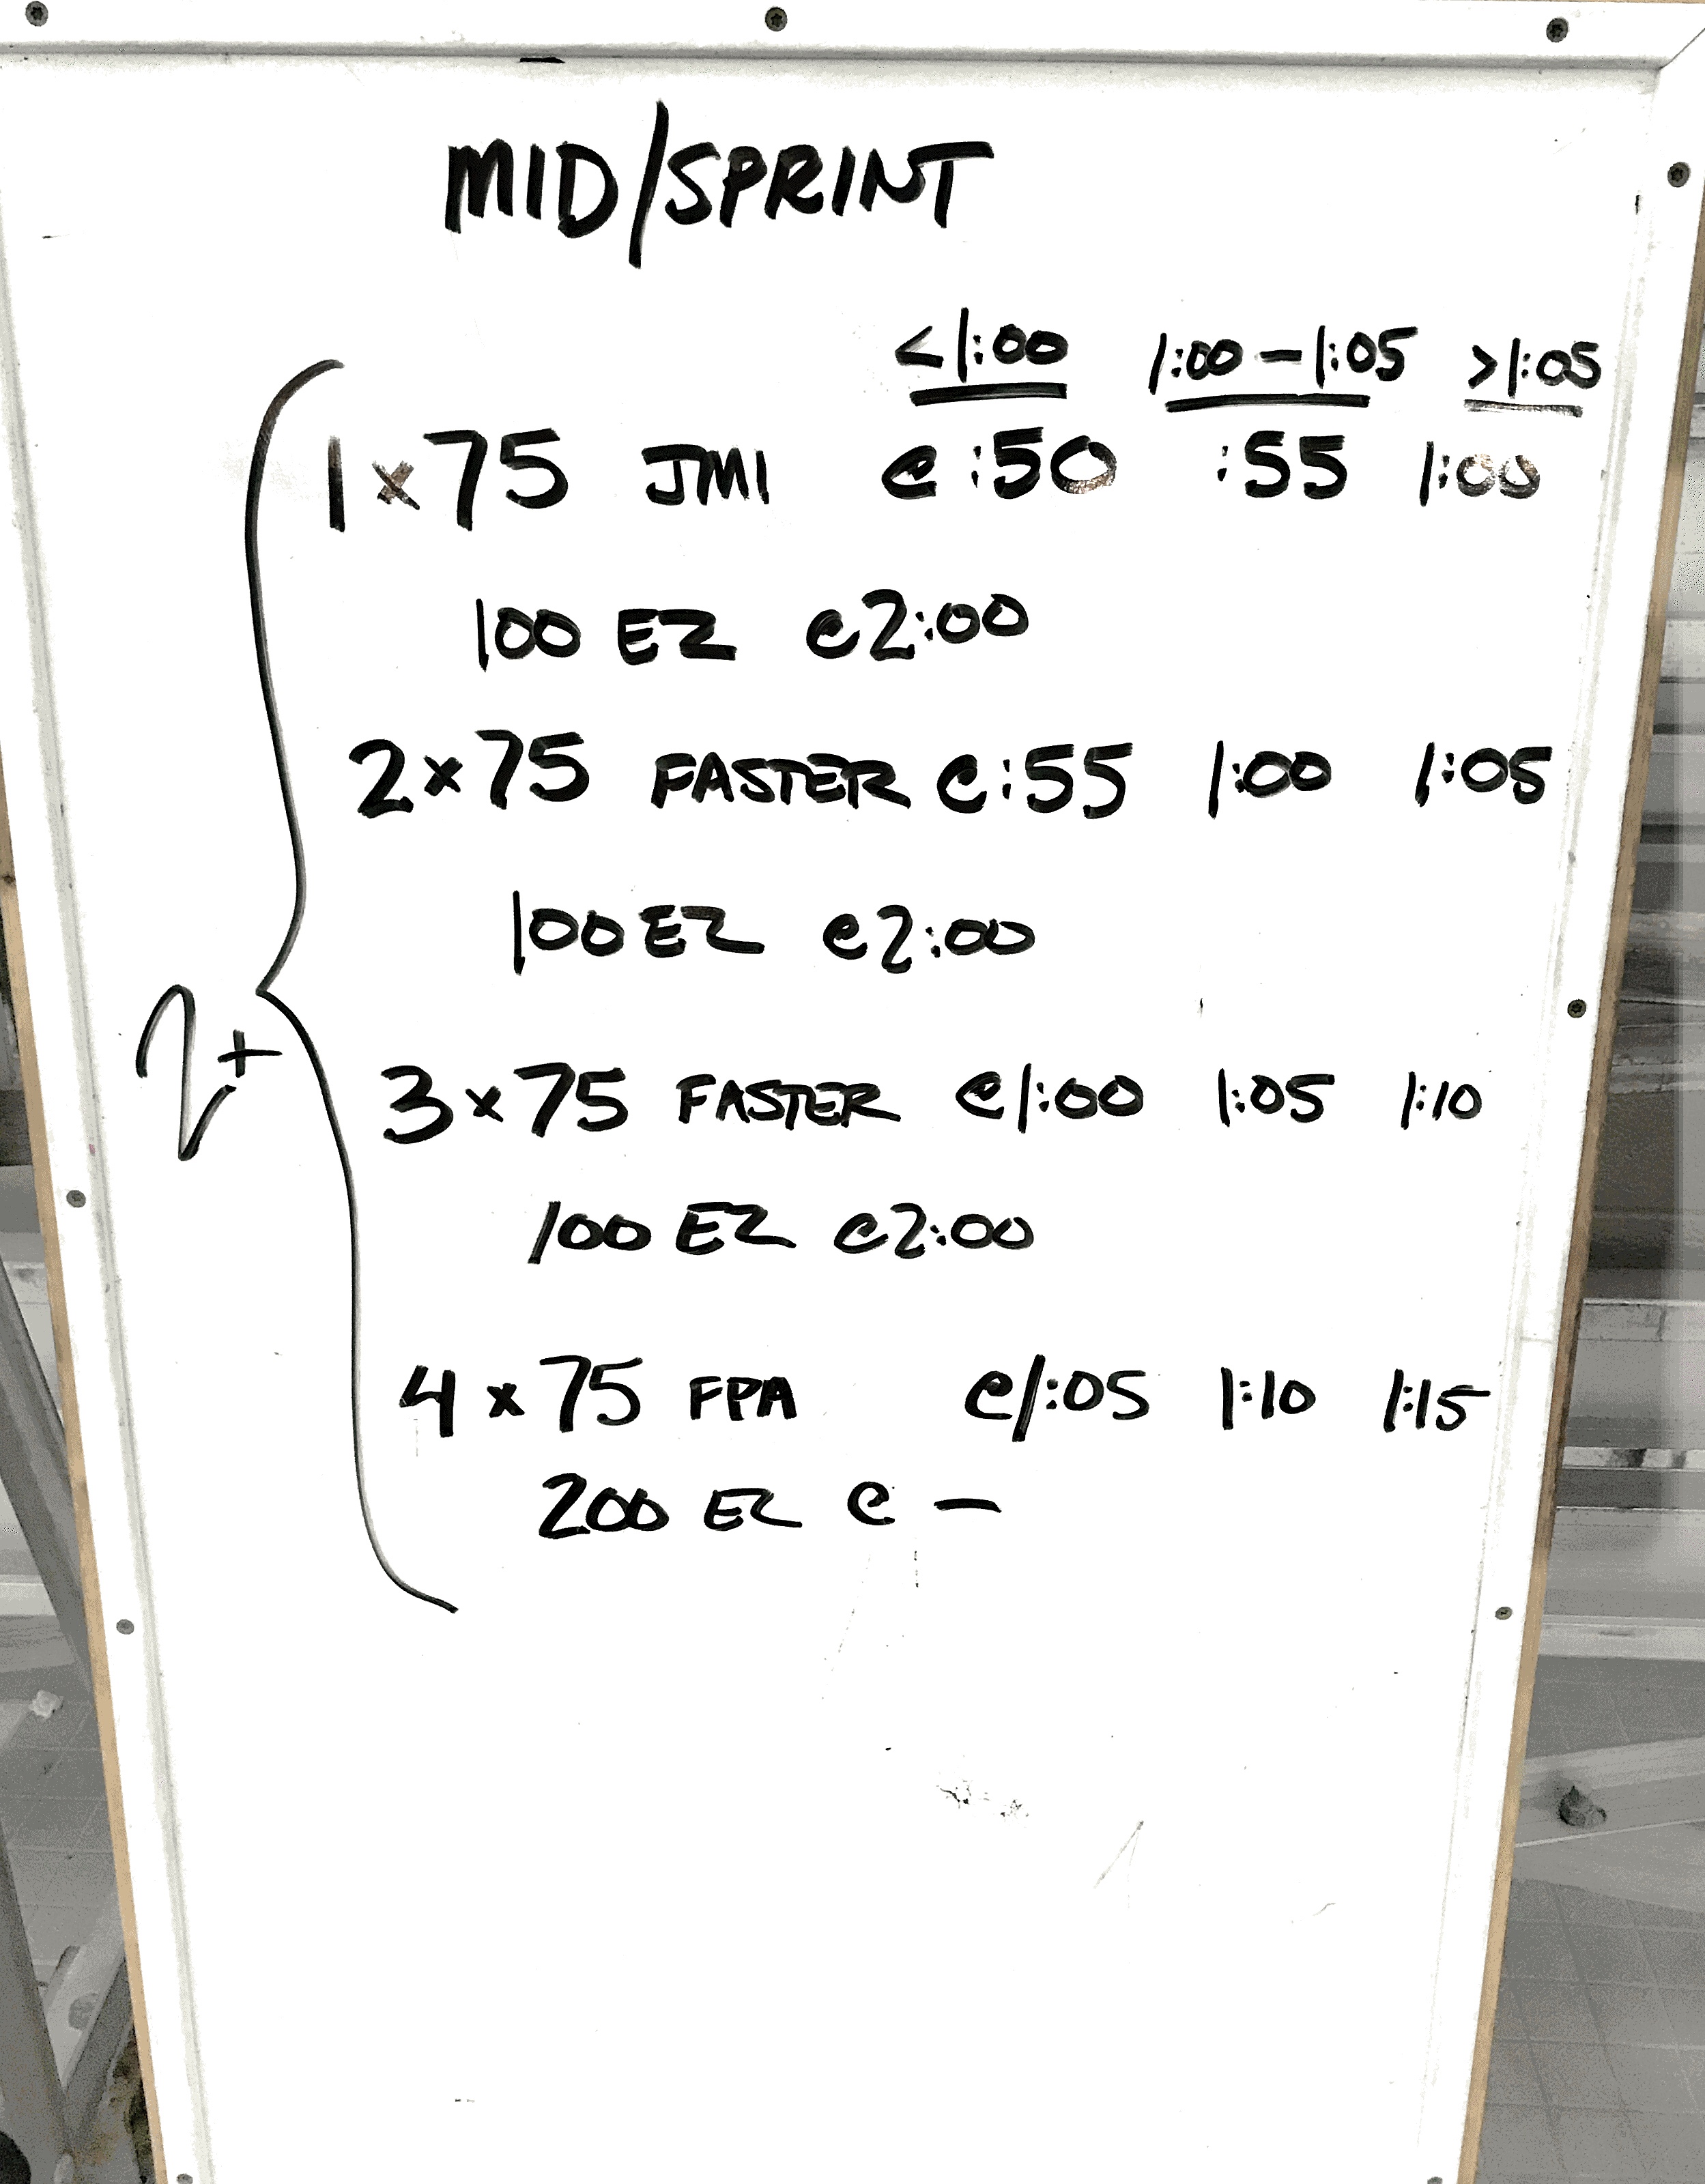 MID/SPRINT
<1:00 1:00-1:05 >1:05
1x75 JMI @:50 :55 1:00
100 EZ @2:00
2x75 FASTER @:55 1:00 1:05
100 EZ @2:00
2+
3x75 FASTER @1:00 1:05 1:10
100 EZ @2:00
4x75 FPA @1:05 1:10 1:15
200 EZ @ —